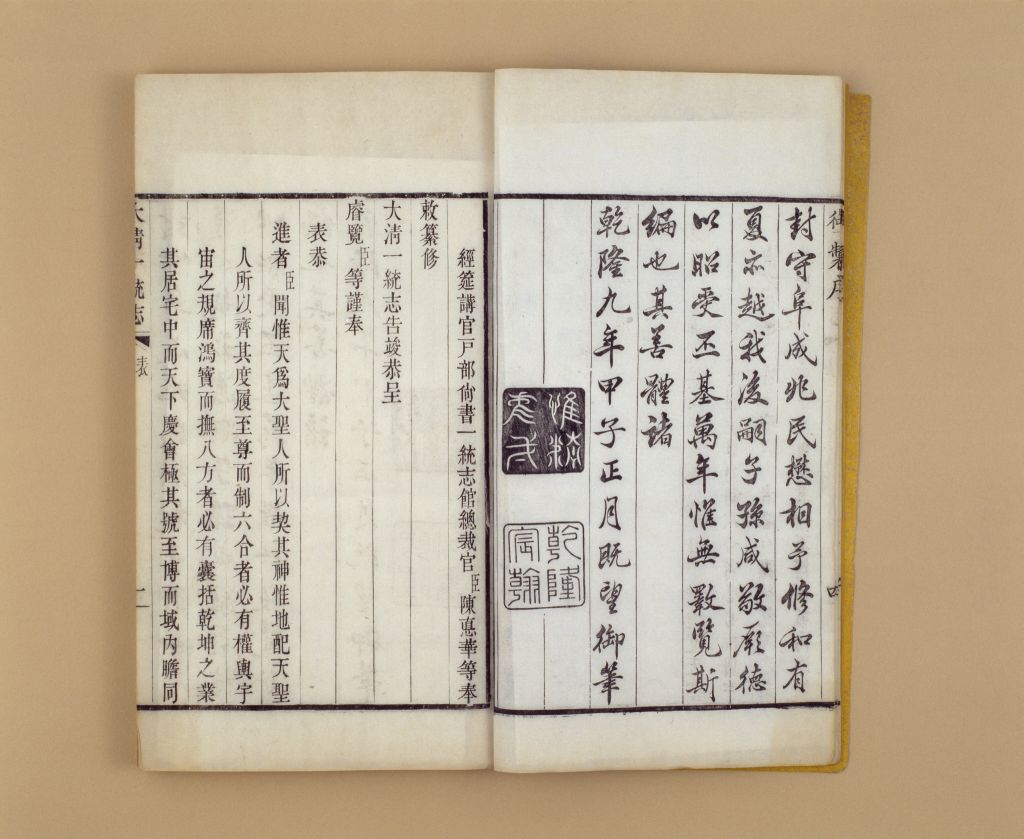 御製序
封守阜成兆民懋相予修和有
夏亦越我後嗣子孫咸敬厥德
以昭受丕基萬年惟無斁覽斯
編也其善體諸
乾隆九年甲子正月既望御筆
惟精
乾隆宸翰
經筵講官戸部尚書一統志館總裁官臣陳悳華等奉
敕纂修
大清一統志告竣恭呈
睿覽臣等謹奉
表恭
進者臣聞惟天爲大聖人所以契其神惟地配天聖
人所以齊其度履至尊而制六合者必有權輿宇
宙之規席鴻寶而撫八方者必有囊括乾坤之業
其居宅中而天下慶會極其號至博而域内瞻同
大清一統志 表 二